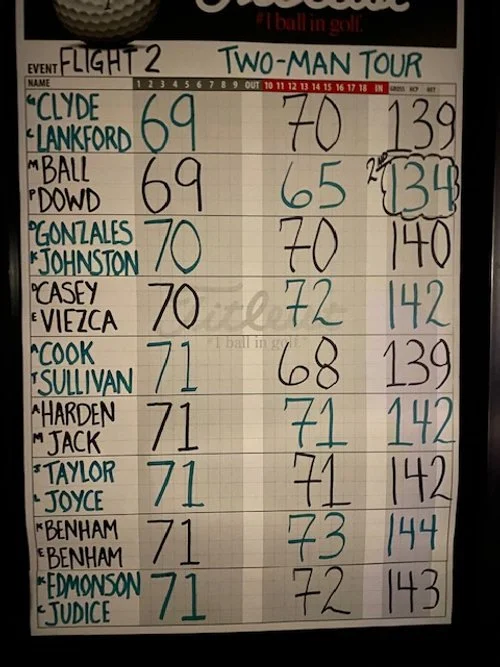 #1 ball in golf.
EVENT FLIGHT 2 TWO-MAN TOUR
NAME 1 2 3 4 5 6 7 8 9 OUT 10 11 12 13 14 15 16 17 18 IN GROSS HCP NET
CLYDE
C LANKFORD 69 70 139
M BALL
P DOWD 69 65 2ND 134
GONZALES
K JOHNSTON 70 70 140
CASEY
E VIEZCA 70 72 142
Titleist
#1 ball in golf.
A COOK
T SULLIVAN 71 68 139
A HARDEN
M JACK 71 71 142
S TAYLOR
L JOYCE 71 71 142
K BENHAM
E BENHAM 71 73 144
K EDMONSON
C JUDICE 71 72 143